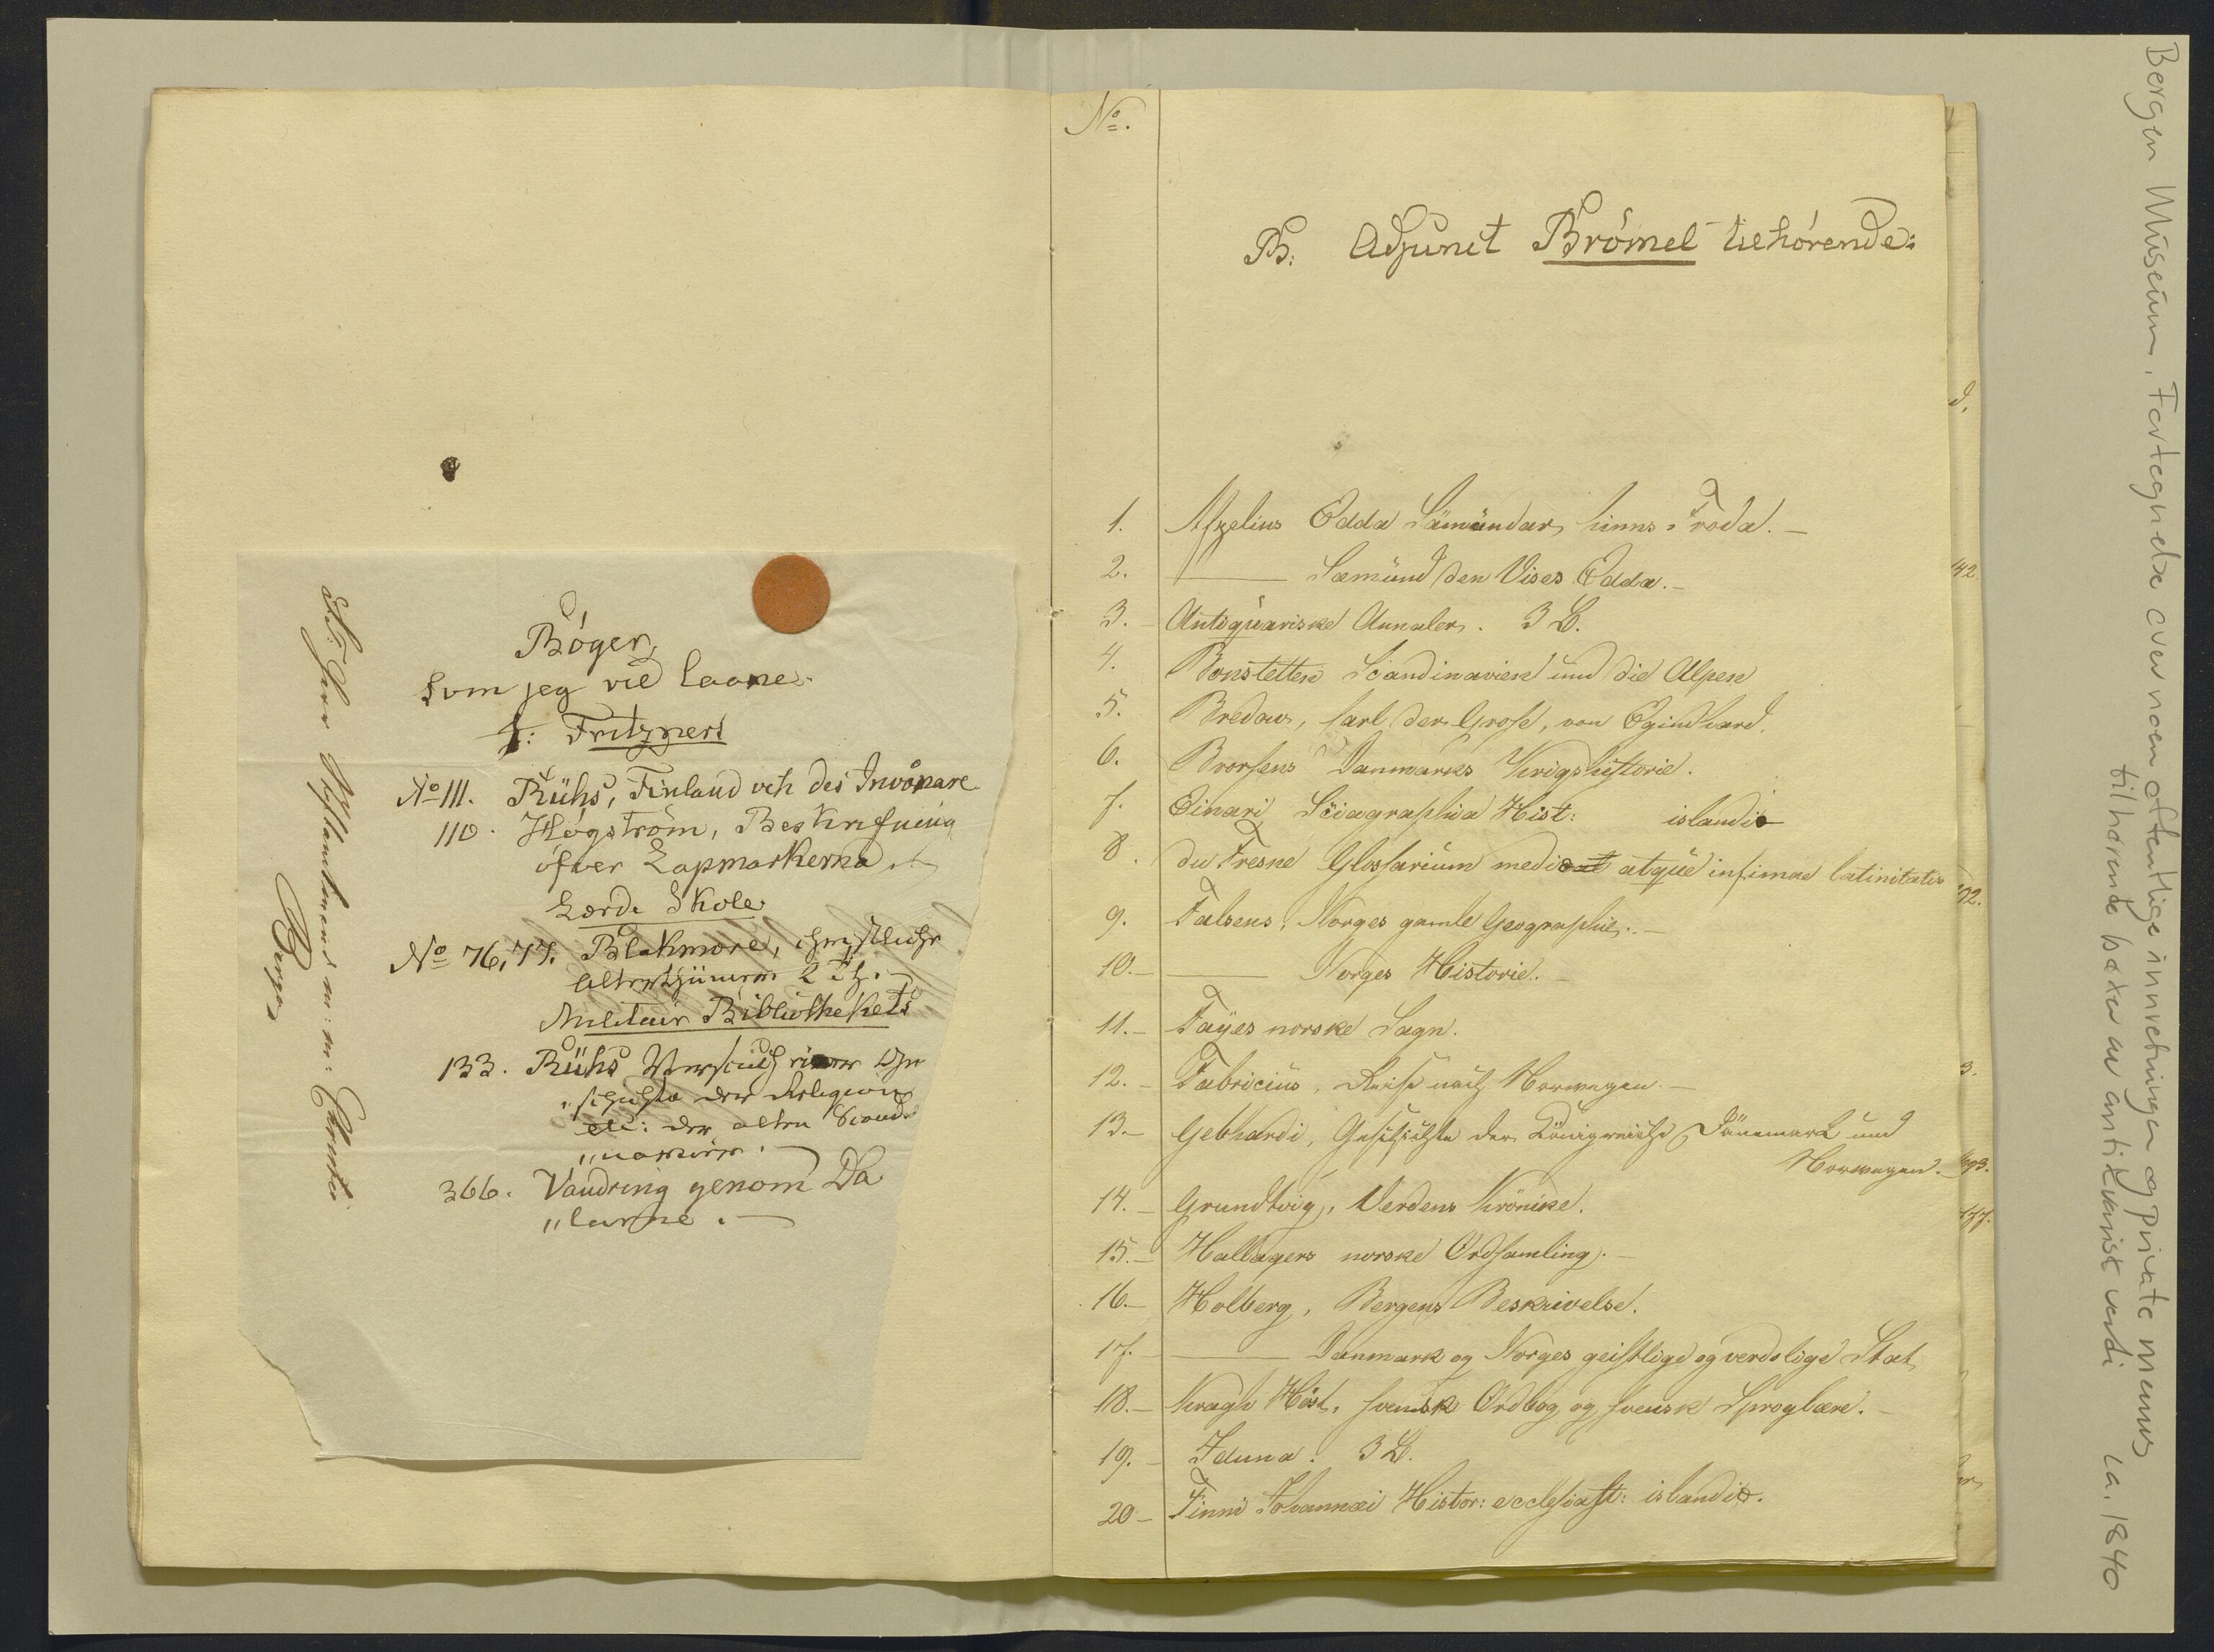 Böger,
som jeg vil laane.
f: Fritzners
No 111. Rühs, Finland och des Invånare
110. Högström, Beskrifning
öfver Lapmarkerna
Lærde Skole
No 76, 77. Blakmore, christliche
Alterthümer 2 Th.
Militair Bibliothekets
133. Rühs Versuch einer Ge
„schichte der Religion
etc: der alten Scandi
„navier.
366. Vandring genom Da
„larne.
S: T: Herr Stiftamtmand m: m: Christie
Bergen
No.
B. Adjunct Brömel tilhörende:
1. Afzelius Edda Sämundar hinns Froda.
2. — Sæmund den Vises Edda.
3. Antiqvariske Annaler. 3 B.
4. Bonstetten Scandinavien und die Alpen
5. Bredow, Carl der Grosse, von Eginhard.
6. Brorsens Danmarks Krigshistorie.
7. Einari Sciagraphia Hist: islandiæ
8. du Fresne Glossarium mediæ atque infimae latinitatis
9. Falsens, Norges gamle Geographie.
10. — Norges Historie.
11. Fayes norske Sagn.
12. Fabricius, Reise nach Norwegen.
13. Gebhardi, Geschichte der Königreiche Dänemark und
Norwegen.
14. Grundtvig, Verdens Krönike.
15. Hallagers norske Ordsamling.
16. Holberg, Bergens Beskrivelse.
17. — Danmark og Norges geistlige og verdslige Stat
18. Kragh Höst, svensk Ordbog og svensk Sproglære.
19. Iduna. 3 B.
20. Finni Johannæi Histor: ecclesiast: islandiæ.
d.
42.
92.
3.
393.
177.
Bergen Museum, Fortegnelse over noen offentlige innretninger og private menns
tilhørende bøker av antikvarisk verdi ca. 1840